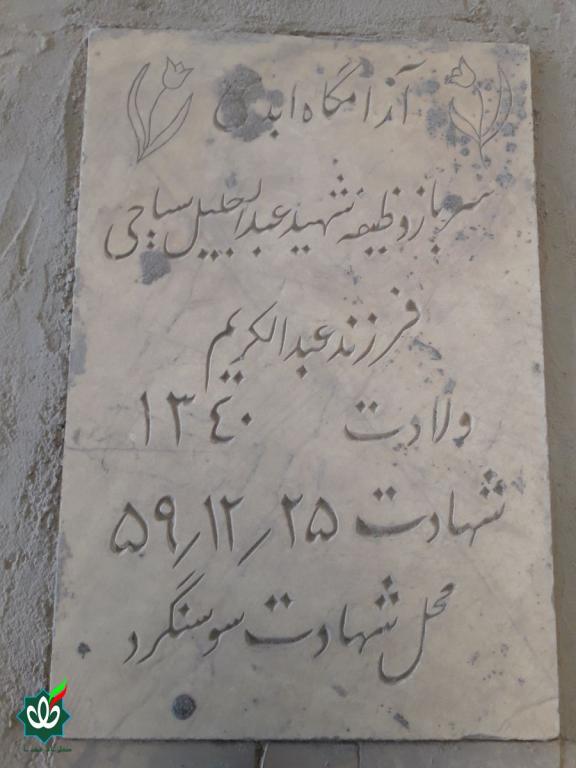 آرامگاه ابدی
سرباز وظیفه شهید عبدالجلیل سیاحی
فرزند عبدالکریم
ولادت ۱۳۴۰
شهادت ۲۵/۱۲/۵۹
محل شهادت سوسنگرد